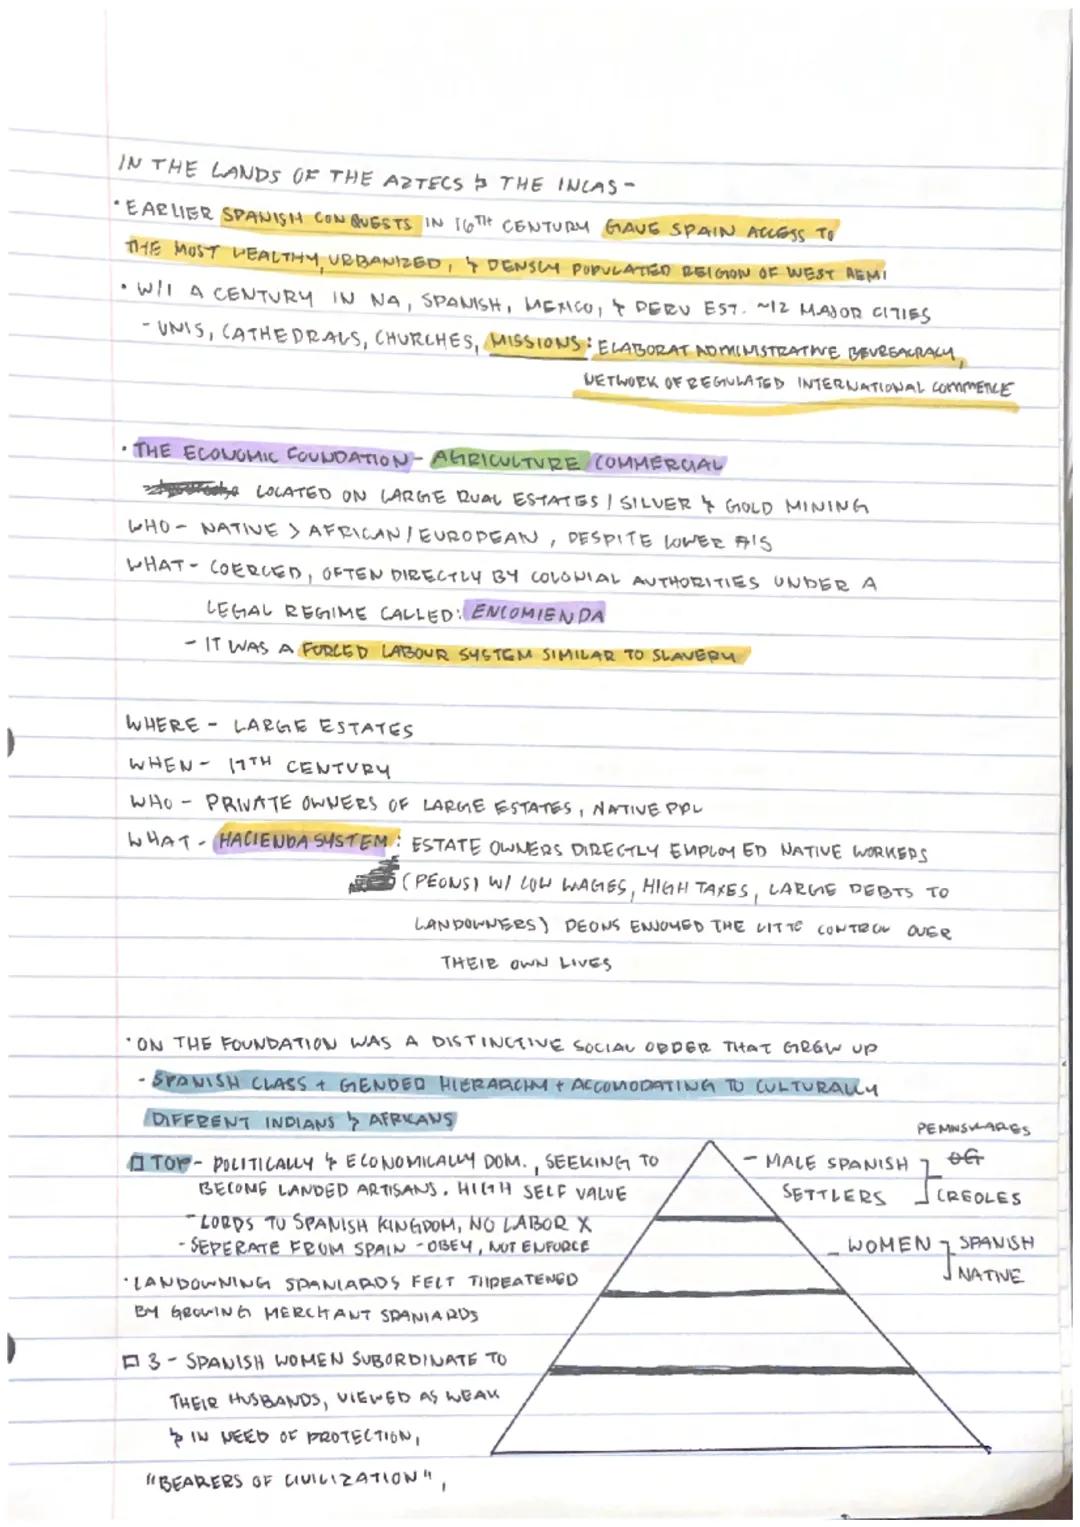 IN THE LANDS OF THE AZTECS & THE INCAS-
• EARLIER SPANISH CONQUESTS IN 16TH CENTURY GAVE SPAIN ACCESS TO
THE MOST WEALTHY, URBANIZED, & DENSLY POPULATED REIGION OF WEST HEMI
• W/I A CENTURY IN NA, SPANISH, MEXICO, & PERU EST. ~12 MAJOR CITIES
- UNIS, CATHEDRALS, CHURCHES, MISSIONS: ELABORAT ADMINISTRATIVE BEUREACRACY,
NETWORK OF REGULATED INTERNATIONAL COMMERCE
• THE ECONOMIC FOUNDATION- AGRICULTURE COMMERCIAL
LOCATED ON LARGE RUAL ESTATES / SILVER & GOLD MINING
WHO- NATIVE > AFRICAN/EUROPEAN, DESPITE LOWER #'S
WHAT- COERCED, OFTEN DIRECTLY BY COLONIAL AUTHORITIES UNDER A
LEGAL REGIME CALLED: ENCOMIENDA
- IT WAS A FORCED LABOUR SYSTEM SIMILAR TO SLAVERY
WHERE - LARGE ESTATES
WHEN- 17TH CENTURY
WHO - PRIVATE OWNERS OF LARGE ESTATES, NATIVE PPL
WHAT- HACIENDA SYSTEM: ESTATE OWNERS DIRECTLY EMPLOYED NATIVE WORKERS
(PEONS) W/ LOW WAGES, HIGH TAXES, LARGE DEBTS TO
LANDOWNERS) PEONS ENJOYED THE CONTROL OVER
THEIR OWN LIVES
• ON THE FOUNDATION WAS A DISTINCTIVE SOCIAL ORDER THAT GREW UP
- SPANISH CLASS + GENDER HIERARCHY + ACCOMODATING TO CULTURALLY
DIFFRENT INDIANS & AFRICANS
PENINSULARES
TOP- POLITICALLY & ECONOMICALLY DOM., SEEKING TO
BECOME LANDED ARTISANS. HIGH SELF VALUE
- LORDS TO SPANISH KINGDOM, NO LABOR X
- SEPERATE FROM SPAIN - OBEY, NOT ENFORCE
- MALE SPANISH OG
SETTLERS CREOLES
- WOMEN SPANISH
NATIVE
• LANDOWNING SPANIARDS FELT THREATENED
BY GROWING MERCHANT SPANIARDS
3- SPANISH WOMEN SUBORDINATE TO
THEIR HUSBANDS, VIEWED AS WEAK
& IN NEED OF PROTECTION,
"BEARERS OF CIVILIZATION",